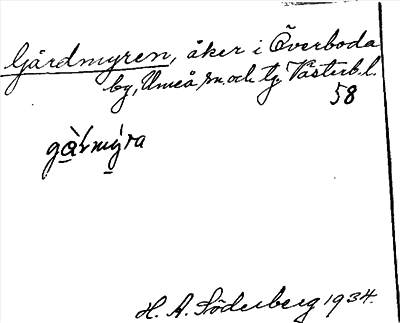 Gårdmyren, åker i Överboda
by, Umeå sn och tg Västerb. l.
58
gà̱rmý̱ra
H. A. Söderberg 1934.